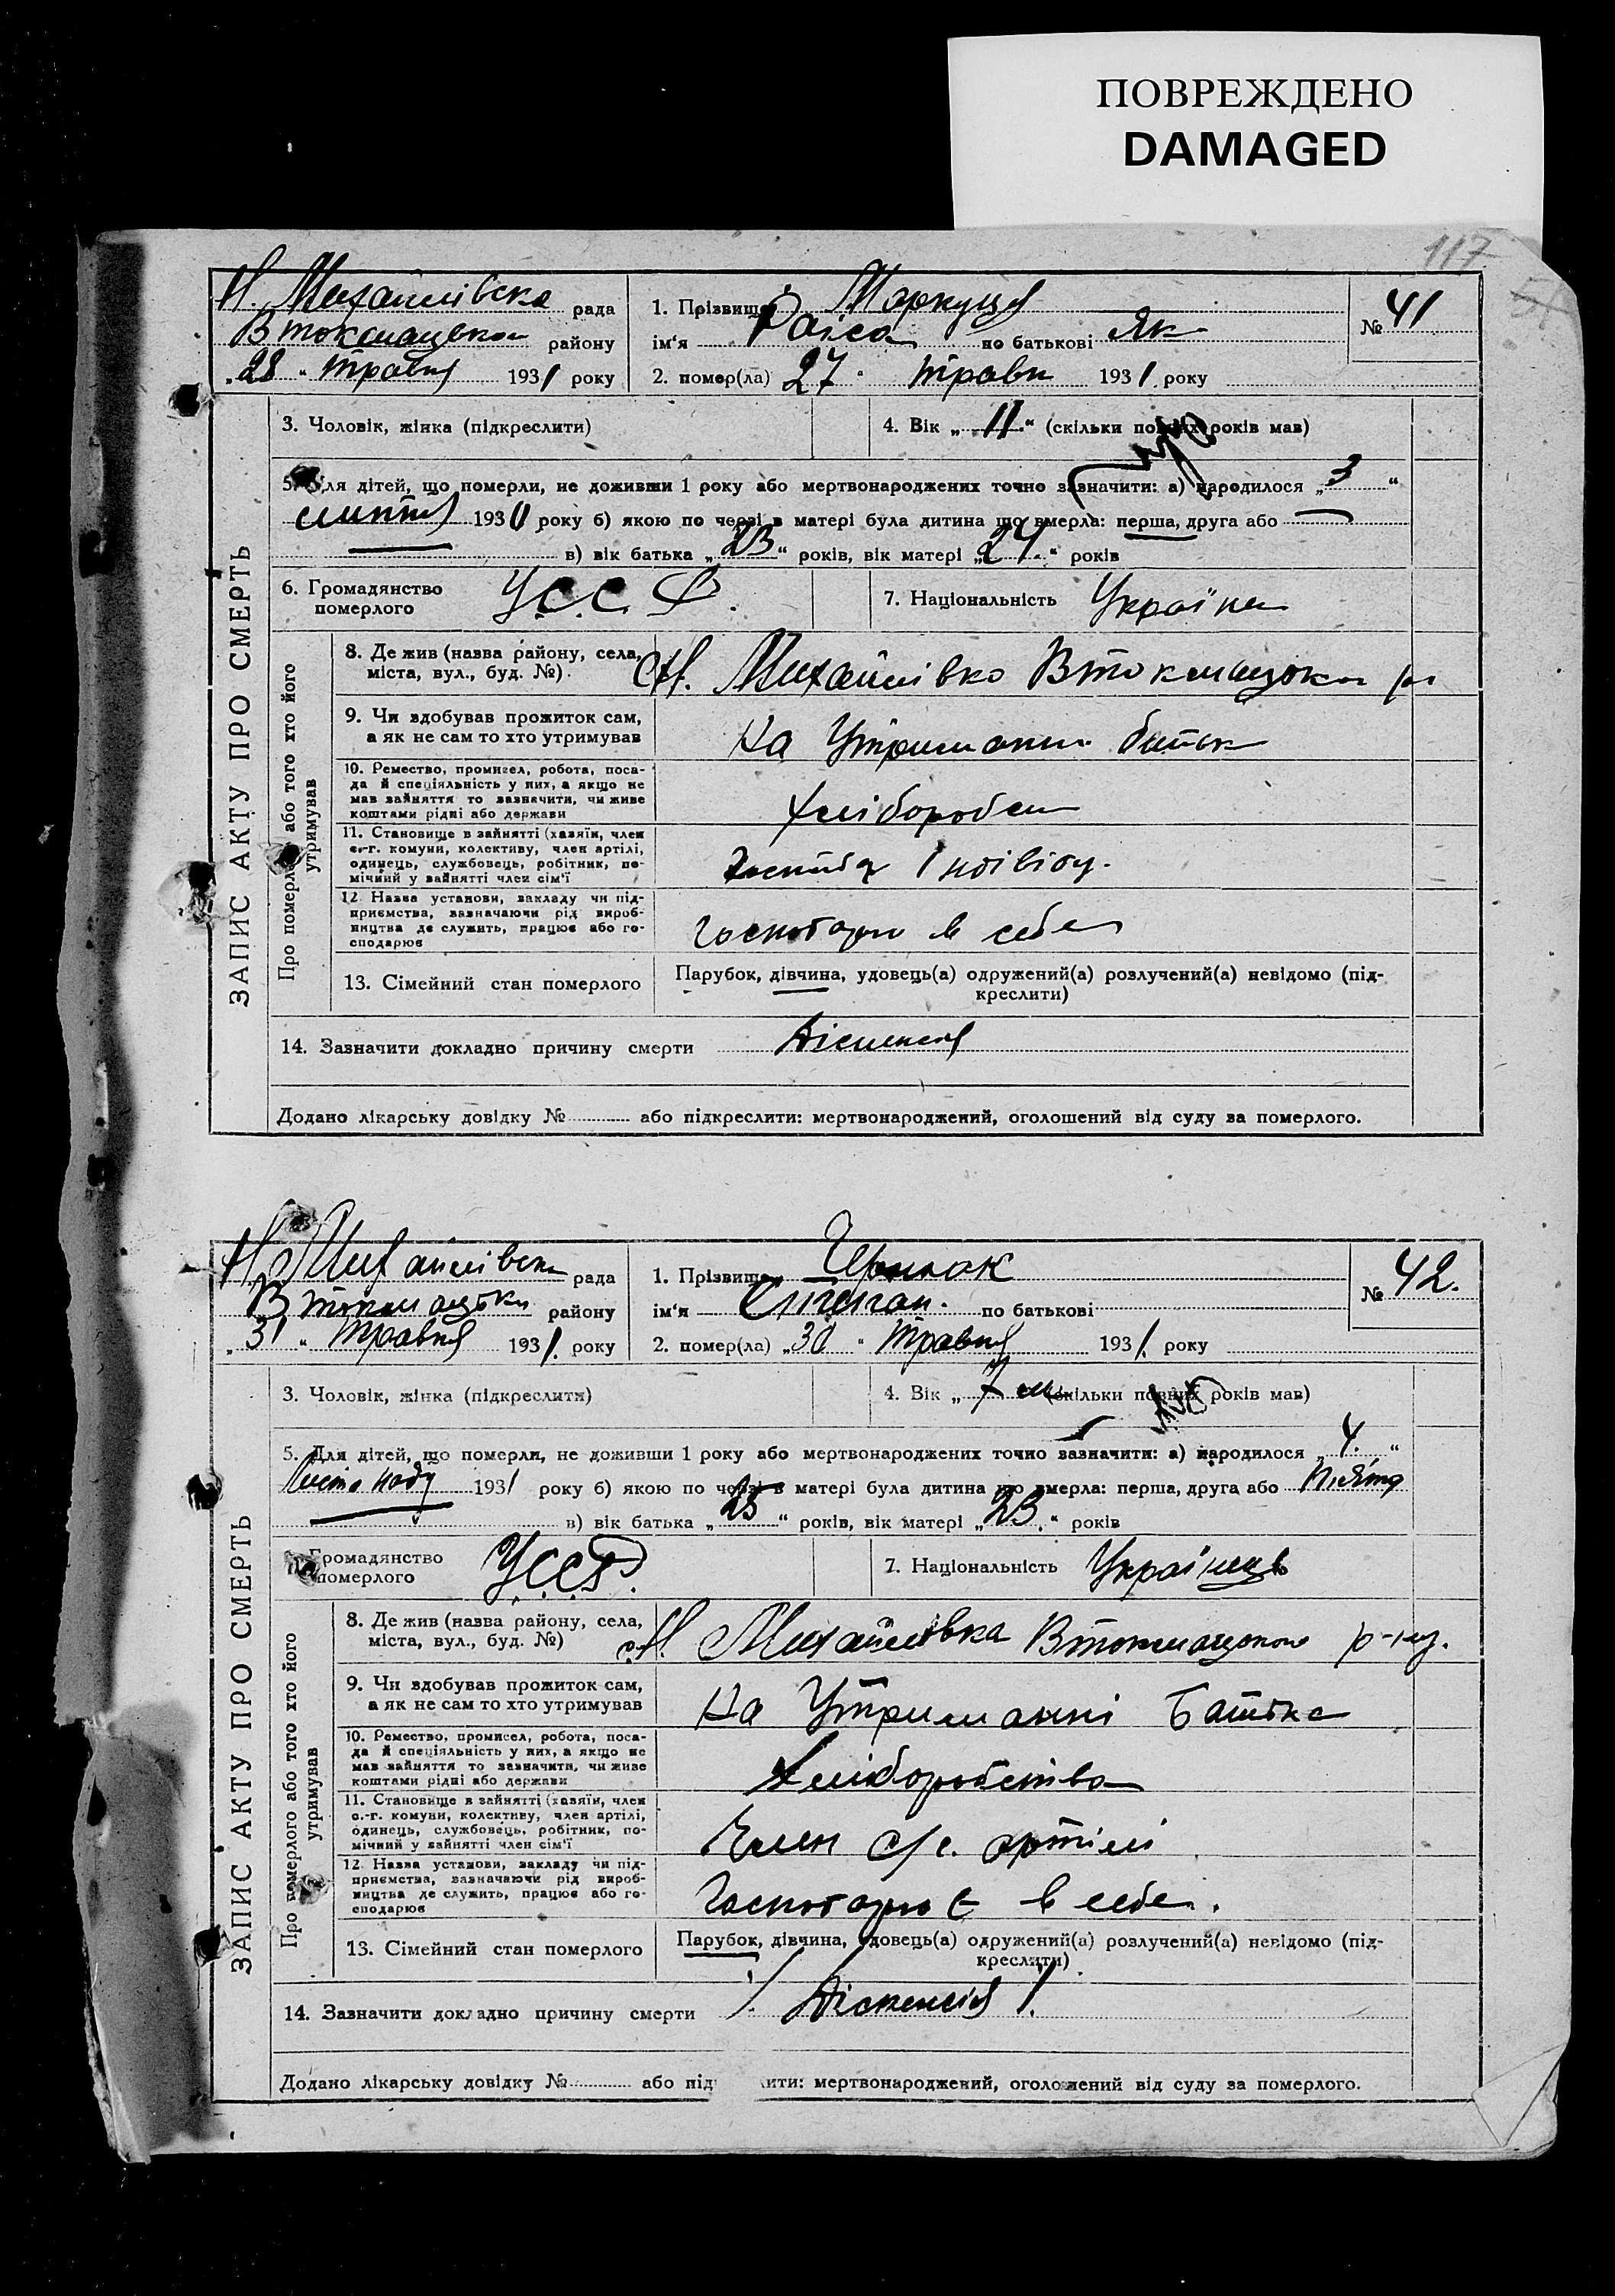 ПОВРЕЖДЕНО
DAMAGED
117
Н. Михайлівська рада
Втокмацька району
„28 " травня 1931 року
1. Прізвище
ім'я Раїса по батькові Як
2. помер(ла) 27 " травн 1931 року
№ 41
3. Чоловік, жінка (підкреслити)
4. Вік „ 11 " (скільки повних років мав)
5. Для дітей, що померли, не доживши 1 року або мертвонароджених точно зазначити: а) народилося „ 3 "
1930 року б) якою по черзі в матері була дитина що вмерла: перша, друга або
в) вік батька „ 23 " років, вік матері „ 21 " років
6. Громадянство
померлого
УССР
7. Національність Україн
ЗАПИС АКТУ ПРО СМЕРТЬ
Про померлого або того хто його
утримував
8. Де жив (назва району, села,
міста, вул., буд. №).
с Н. Михайлівка Втокмацьк р
9. Чи здобував прожиток сам,
а як не сам то хто утримував
На Утриманні батьк
10. Ремество, промисел, робота, поса-
да й спеціяльність у них, а якщо не
мав зайняття то зазначити, чи живе
коштами рідні або держави
Хлібороб
11. Становище в зайнятті (хазяїн, член
с.-г. комуни, колективу, член артілі,
одинець, службовець, робітник, по-
мічний у зайнятті член сім'ї
Індівід.
12 Назва установи, закладу чи під-
приємства, зазначаючи рід вироб-
ництва де служить, працює або го-
сподарює
Господарю в себе
13. Сімейний стан померлого
Парубок, дівчина, удовець(а) одружений(а) розлучений(а) невідомо (під-
креслити)
14. Зазначити докладно причину смерти
Діспепсія
Додано лікарську довідку № або підкреслити: мертвонароджений, оголошений від суду за померлого.
Н. Михайлівськ рада
Втокмацьк району
„ 31 " травня 1931. року
1. Прізвище
ім'я Степан. по батькові
2. помер(ла) „30 " травня 1931. року
№ 42.
3. Чоловік, жінка (підкреслити)
4. Вік „ 7 м (скільки повних років мав)
5. Для дітей, що померли, не доживши 1 року або мертвонароджених точно зазначити: а) народилося „ 4. "
Листопаду 1931 року б) якою по черзі в матері була дитина що вмерла: перша, друга або п'ята
в) вік батька „ 25 " років, вік матері „ 23. " років
Громадянство
померлого
УССР.
7. Національність Українець
ЗАПИС АКТУ ПРО СМЕРТЬ
Про померлого або того хто його
утримував
8. Де жив (назва району, села,
міста, вул., буд. №)
с. Н. Михайлівка Втокмацьког р-ну.
9. Чи здобував прожиток сам,
а як не сам то хто утримував
На Утриманні Батька
10. Ремество, промисел, робота, поса-
да й спеціяльність у них, а якщо не
мав зайняття то зазначити, чи живе
коштами рідні або держави
Хліборобство
11. Становище в зайнятті (хазяїн, член
с.-г. комуни, колективу, член артілі,
одинець, службовець, робітник, по-
мічний у зайнятті член сім'ї
Член с/г. артілі
12 Назва установи, закладу чи під-
приємства, зазначаючи рід вироб-
ництва де служить, працює або го-
сподарює
Господарює в себе.
13. Сімейний стан померлого
Парубок, дівчина, удовець(а) одружений(а) розлучений(а) невідомо (під-
креслити)
14. Зазначити докладно причину смерти
Діспепсія
Додано лікарську довідку № або під ити: мертвонароджений, оголошений від суду за померлого.